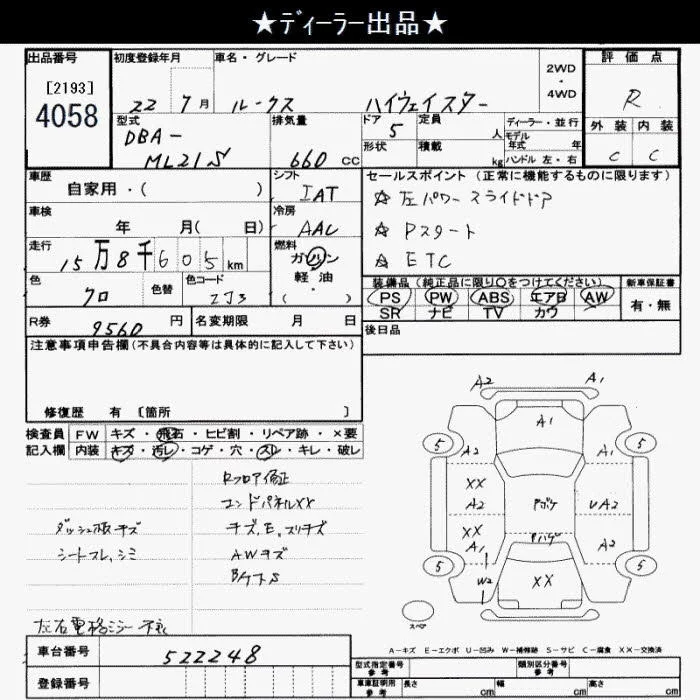 ★ディーラー出品★
出品番号
[2193]
4058
初度登録年月
22 7月
車名・グレード
ルークス ハイウェイスター
2WD
・
4WD
評価点
R
外装 内装
C C
型式
DBA-
ML21S
排気量
660 cc
ドア 5
定員 人
形状
積載 kg
ディーラー・並行
モデル年式 年
ハンドル 左・右
車歴
自家用・( )
シフト
IAT
車検
年 月( 日)
冷房
AAC
走行
15万8千605km
燃料
ガソリン
軽油・
( )
色
クロ
色替
色コード
ZJ3
R券 9560 円
名変期限 月 日
セールスポイント(正常に機能するものに限ります)
☆ 左パワースライドドア
☆ Pスタート
☆ ETC
装備品(純正品に限り○をつけてください)
PS PW ABS エアB AW
SR ナビ TV カワ
新車保証書
有・無
後日品
注意事項申告欄(不具合内容等は具体的に記入して下さい)
修復歴 有 [箇所 ]
検査員
記入欄
FW キズ・飛石・ヒビ割・リペア跡・×要
内装 キズ・汚レ・コゲ・穴・スレ・キレ・破レ
Rフロア修正
エンドパネルXX
ダッシュ板キズ
キズ、E、スリキズ
シートスレ、シミ
AWキズ
左右電格ミラー不良
A2 A1
A1
5 5
A2 A1
XX
A2
Aボケ
UA2
XX
A1
A2
5 5
W2
XX
スペア
A-キズ E-エクボ U-凹み W-補修跡 S-サビ C-腐食 XX-交換済
車台番号 522248
登録番号
型式指定番号
参考
類別区分番号
参考
車庫証明用
参考
長さ cm 幅 cm 高さ cm